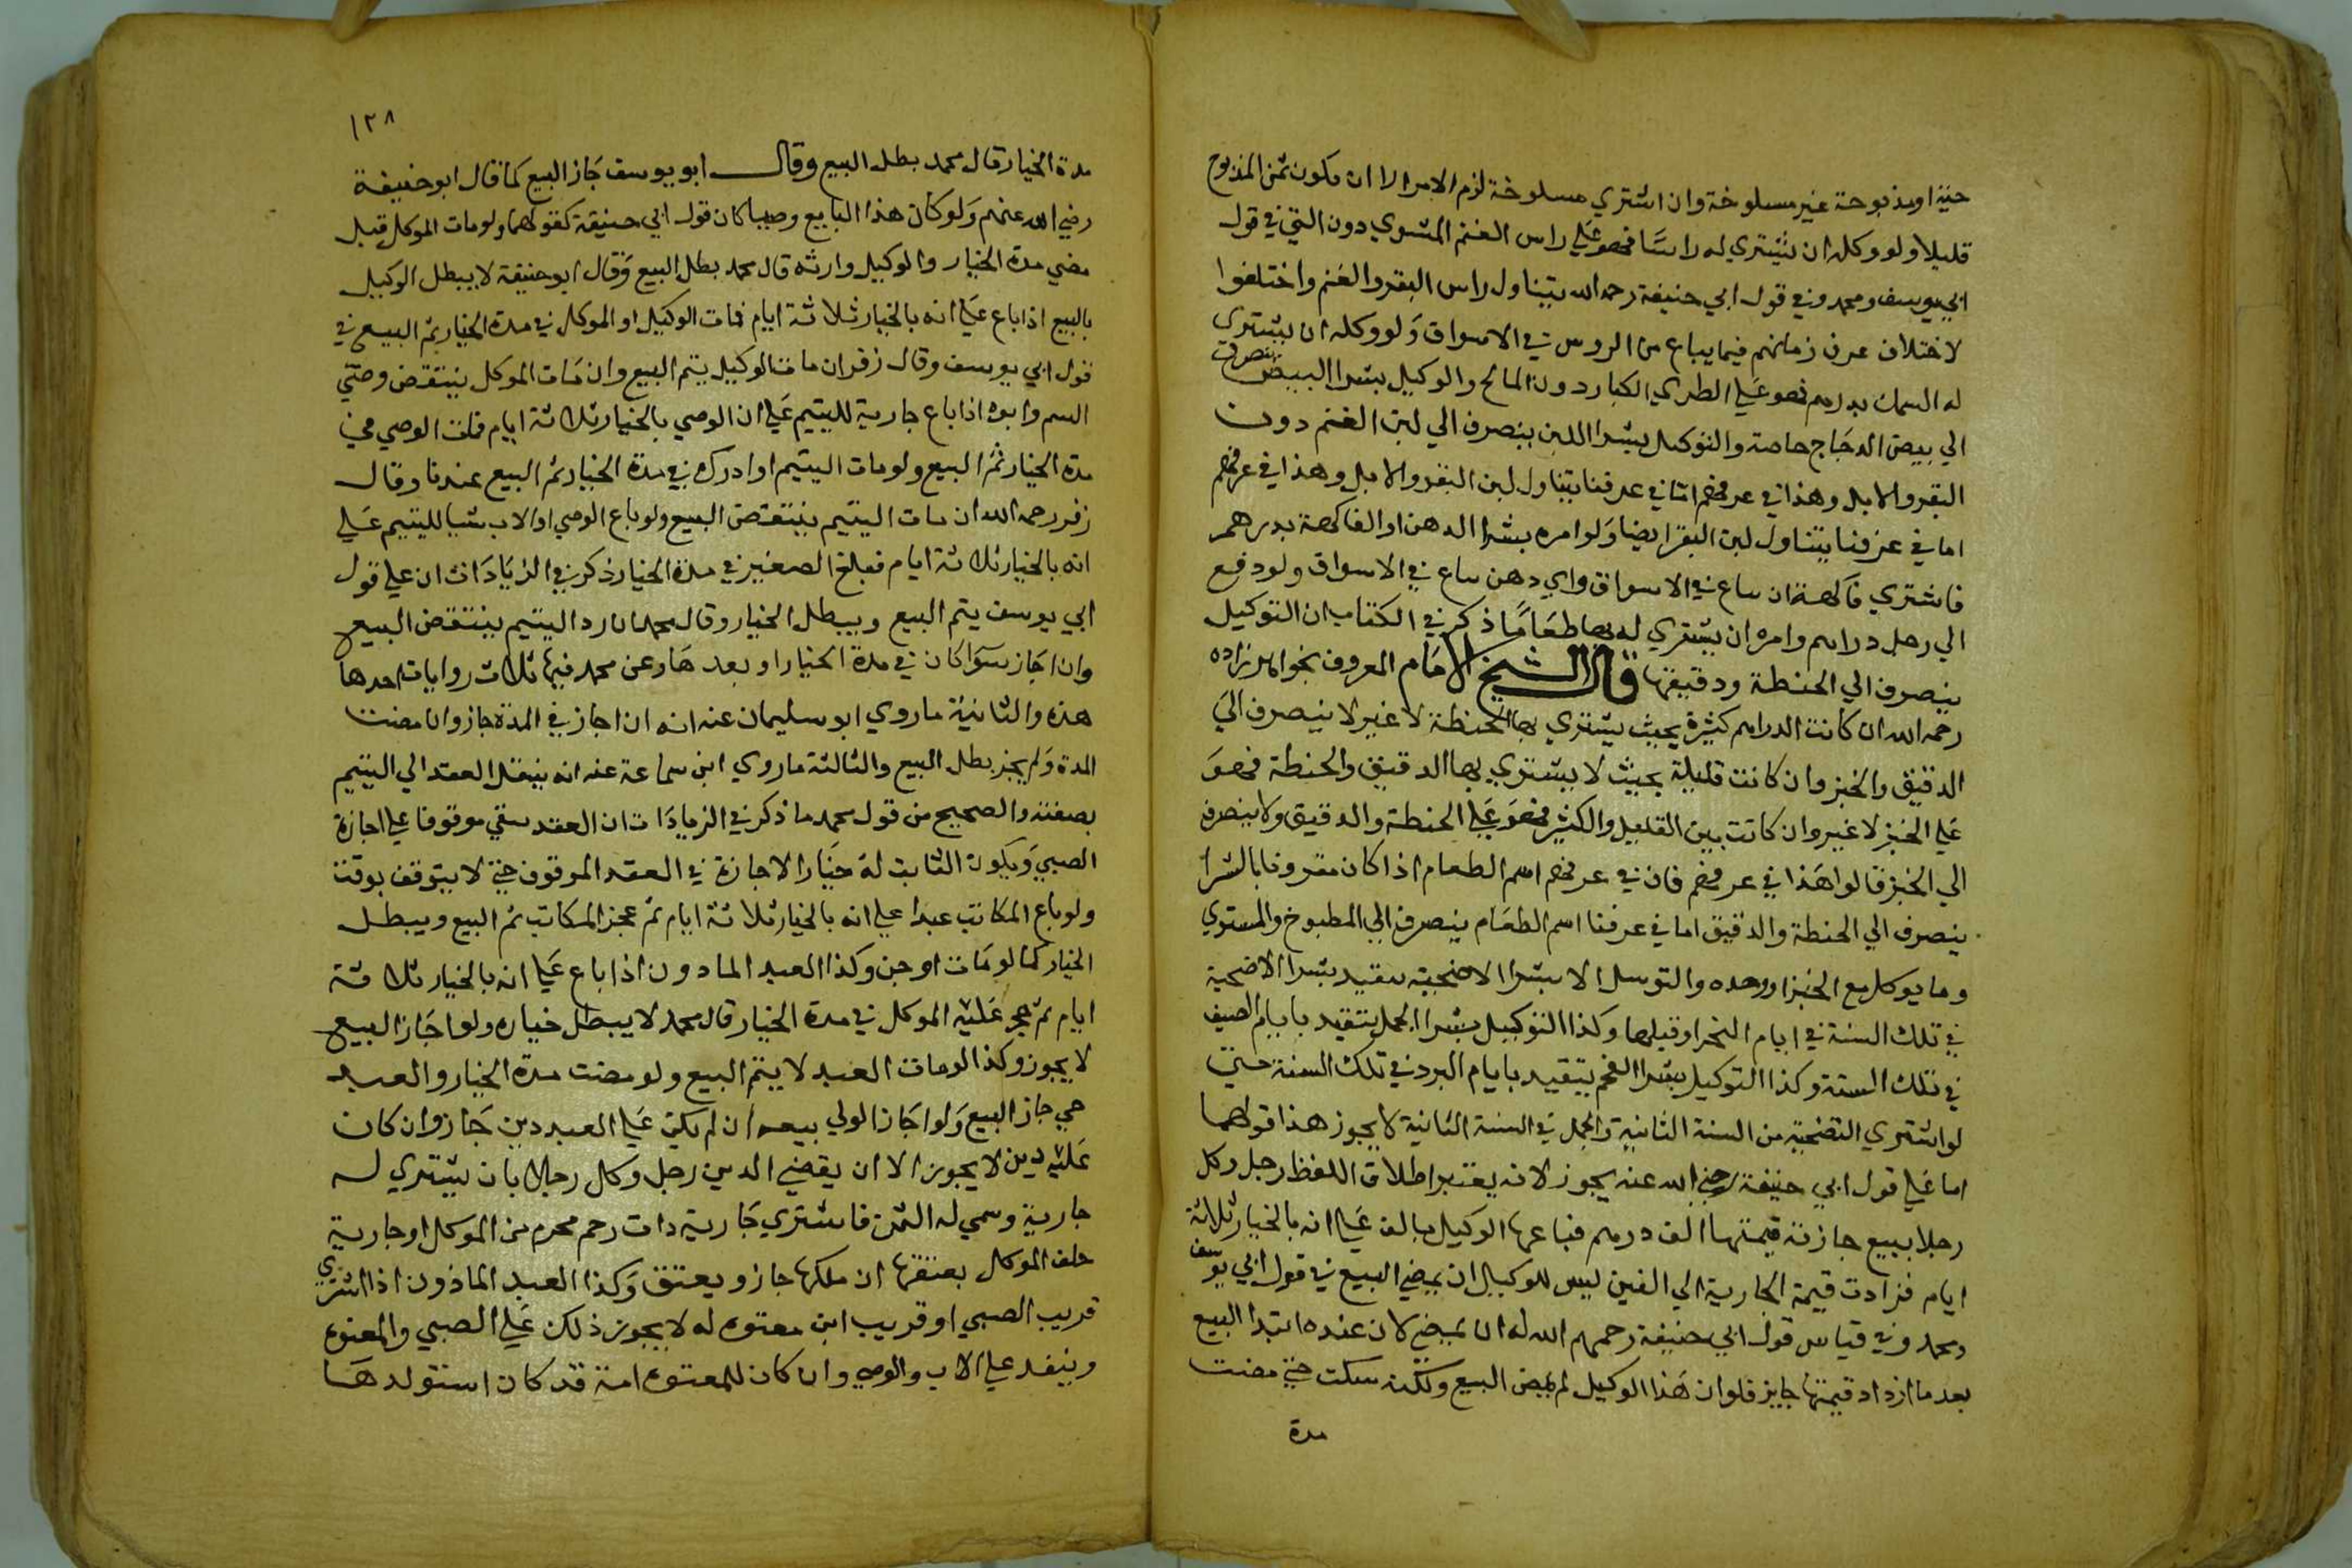 حية او مذبوحة غير مسلوخة وان اشتري مسلوخة لزم الامر الا ان يكون ثمن المذبوح
قليلا ولو وكله ان يشتري له راسا فهو علي راس الغنم المشوي دون الني في قول
ابي يوسف ومحمد وفي قول ابي حنيفة رحمه الله يتناول راس البقر والغنم واختلفوا
لاختلاف عرف زمانهم فيما يباع من الروس في الاسواق ولو وكله ان يشتري
له السمك بدرهم فهو علي الطري الكبار دون المالح والوكيل بشرا البيض ينصرف
الي بيض الدجاج خاصة والتوكيل بشرا اللبن ينصرف الي لبن الغنم دون
البقر والابل وهذا في عرفهم اما في عرفنا يتناول لبن البقر والابل وهذا في عرفهم
اما في عرفنا يتناول لبن البقر ايضا ولو امره بشرا الدهن او الفاكهة بدرهم
فاشتري فاكهة تباع في الاسواق واي دهن يباع في الاسواق ولو دفع
الي رجل دراهم وامره ان يشتري له بها طعاما ذكر في الكتاب ان التوكيل
ينصرف الي الحنطة ودقيقها قال الشيخ الامام المعروف بخواهر زاده
رحمه الله ان كانت الدراهم كثيرة بحيث يشتري بها الحنطة لا غير لا ينصرف الي
الدقيق والخبز وان كانت قليلة بحيث لا يشتري بها الدقيق والحنطة فهو
علي الخبز لا غير وان كانت بين القليل والكثير فهو علي الحنطة والدقيق ولا ينصرف
الي الخبز قالوا هذا في عرفهم فان في عرفهم اسم الطعام اذا كان مقرونا بالشرا
ينصرف الي الحنطة والدقيق اما في عرفنا اسم الطعام ينصرف الي المطبوخ والمشوي
وما يوكل مع الخبز او وحده والتوسل الا بشرا الاضحية يتقيد بشرا الاضحية
في تلك السنة في ايام النحر او قبلها وكذا التوكيل بشرا الجمل يتقيد بايام الصيف
في تلك السنة وكذا التوكيل بشرا الفحم يتقيد بايام البرد في تلك السنة حتي
لو اشتري التضحية من السنة الثانية والجمل في السنة الثانية لا يجوز هذا قولهما
اما علي قول ابي حنيفة رضي الله عنه يجوز لانه يعتبر اطلاق اللفظ رجل وكل
رجلا ببيع جارية قيمتها الف درهم فباعها الوكيل بالف علي انه بالخيار ثلاثة
ايام فزادت قيمة الجارية الي الفين ليس للوكيل ان يمضي البيع في قول ابي يوسف
ومحمد وفي قياس قول ابي حنيفة رحمهم الله له ان يمضي لان عنده ابتدا البيع
بعد ما ازداد قيمتها جايز فلو ان هذا الوكيل لم يمض البيع ولكنه سكت حتي مضت
مدة
١٢٨
مدة الخيار قال محمد بطل البيع وقال ابو يوسف جاز البيع كما قال ابو حنيفة
رضي الله عنهم ولو كان هذا البايع وصيا كان قول ابي حنيفة كقولهما ولو مات الموكل قبل
مضي مدة الخيار والوكيل وارثه قال محمد بطل البيع وقال ابو حنيفة لا يبطل الوكيل
بالبيع اذا باع علي انه بالخيار ثلاثة ايام فمات الوكيل او الموكل في مدة الخيار يتم البيع في
قول ابي يوسف وقال زفر ان مات الوكيل يتم البيع وان مات الموكل ينتقض وصي
اليتيم وابوه اذا باع جارية لليتيم علي ان الوصي بالخيار ثلاثة ايام فمات الوصي في
مدة الخيار تم البيع ولو مات اليتيم او ادرك في مدة الخيار تم البيع عندنا وقال
زفر رحمه الله ان مات اليتيم ينتقض البيع ولو باع الوصي او الاب شيا لليتيم علي
انه بالخيار ثلاثة ايام فبلغ الصغير في مدة الخيار ذكر في الزيادات ان علي قول
ابي يوسف يتم البيع ويبطل الخيار وقال محمد ان رد اليتيم ينتقض البيع
وان اجاز سوا كان في مدة الخيار او بعدها وعن محمد فيها ثلاث روايات احدها
هذه والثانية ما روي ابو سليمان عنه انه ان اجاز في المدة جاز وان مضت
المدة ولم يجز بطل البيع والثالثة ما روي ابن سماعة عنه انه ينتقل العقد الي اليتيم
بصفته والصحيح من قول محمد ما ذكر في الزيادات ان العقد يبقي موقوفا علي اجازة
الصبي ويكون الثابت له خيار الاجازة في العقد الموقوف حتي لا يتوقف بوقت
ولو باع المكاتب عبدا علي انه بالخيار ثلاثة ايام ثم عجز المكاتب تم البيع ويبطل
الخيار كما لو مات او جن وكذا العبد الماذون اذا باع علي انه بالخيار ثلاثة
ايام ثم حجر عليه الموكل في مدة الخيار قال محمد لا يبطل خياره ولو اجاز البيع
لا يجوز وكذا لو مات العبد لا يتم البيع ولو مضت مدة الخيار والعبد
حي جاز البيع ولو اجاز الولي بيعه ان لم يكن علي العبد دين جاز وان كان
عليه دين لا يجوز الا ان يقضي الدين رجل وكل رجلا بان يشتري له
جارية وسمي له الثمن فاشتري جارية ذات رحم محرم من الموكل او جارية
حلف الموكل بعتقها ان ملكها جاز ويعتق وكذا العبد الماذون اذا اشتري
قريب الصبي او قريب ابن معتوه له لا يجوز ذلك علي الصبي والمعتوه
وينفد علي الاب والوصي وان كان للمعتوه امة قد كان استولدها